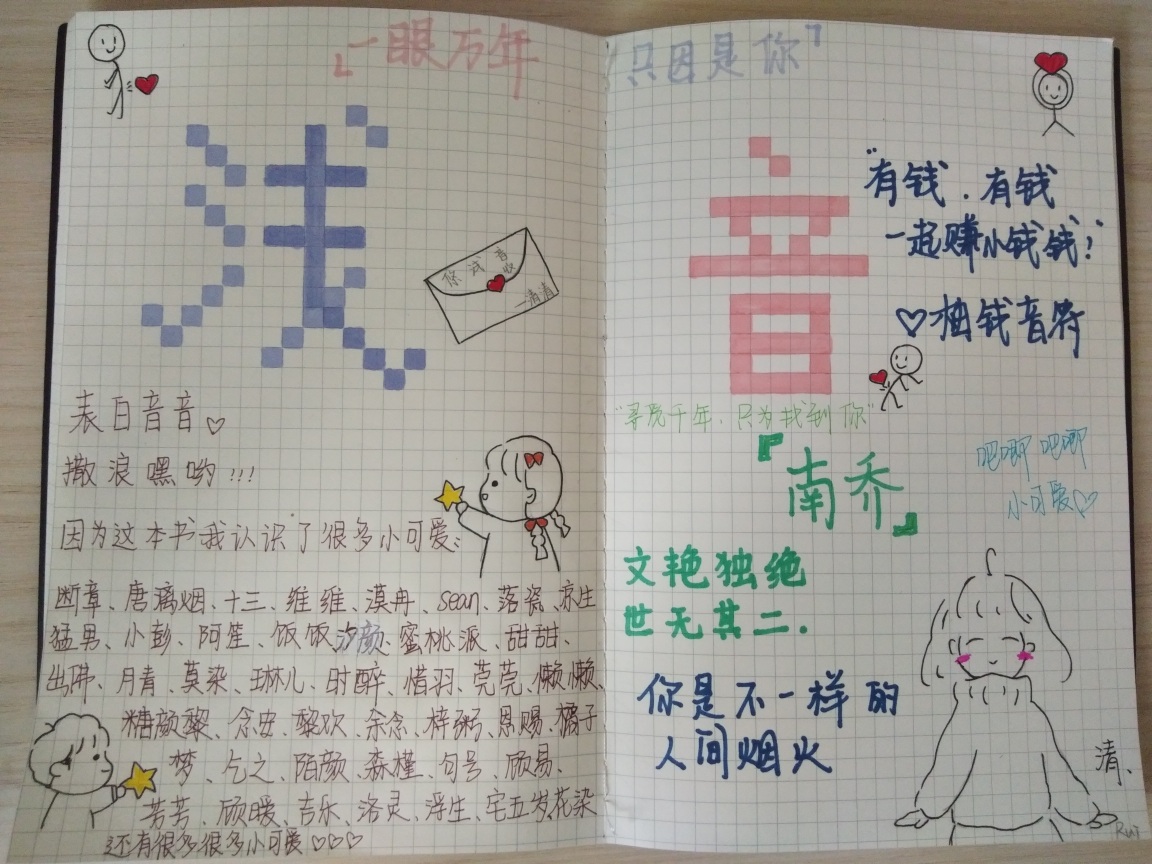 「一眼万年
浅
你浅音收
—清清
表白音音♡
撒浪嘿哟!!!
因为这本书我认识了很多小可爱:
断章、唐漓烟、十三、维维、漠冉、sean、落瓷、凉生
猛男、小彭、阿笙、饭饭、汐颜、蜜桃派、甜甜、
出稀、月青、莫染、琳儿、时醉、惜羽、莞莞、懒懒、
糖颜黎、念安、黎欢、余念、梓粥、恩赐、橘子
梦、乞之、陌颜、森槿、句号、顾易、
芳芳、顾暖、吉乐、洛灵、浮生、宅五岁、花染
还有很多很多小可爱♡♡♡
只因是你」
音
"有钱.有钱
一起赚小钱钱!"
♡独钱音符
"寻觅千年,只为找到你"
『南乔』
吧唧吧唧
小可爱♡
文艳独绝
世无其二.
你是不一样的
人间烟火
清、